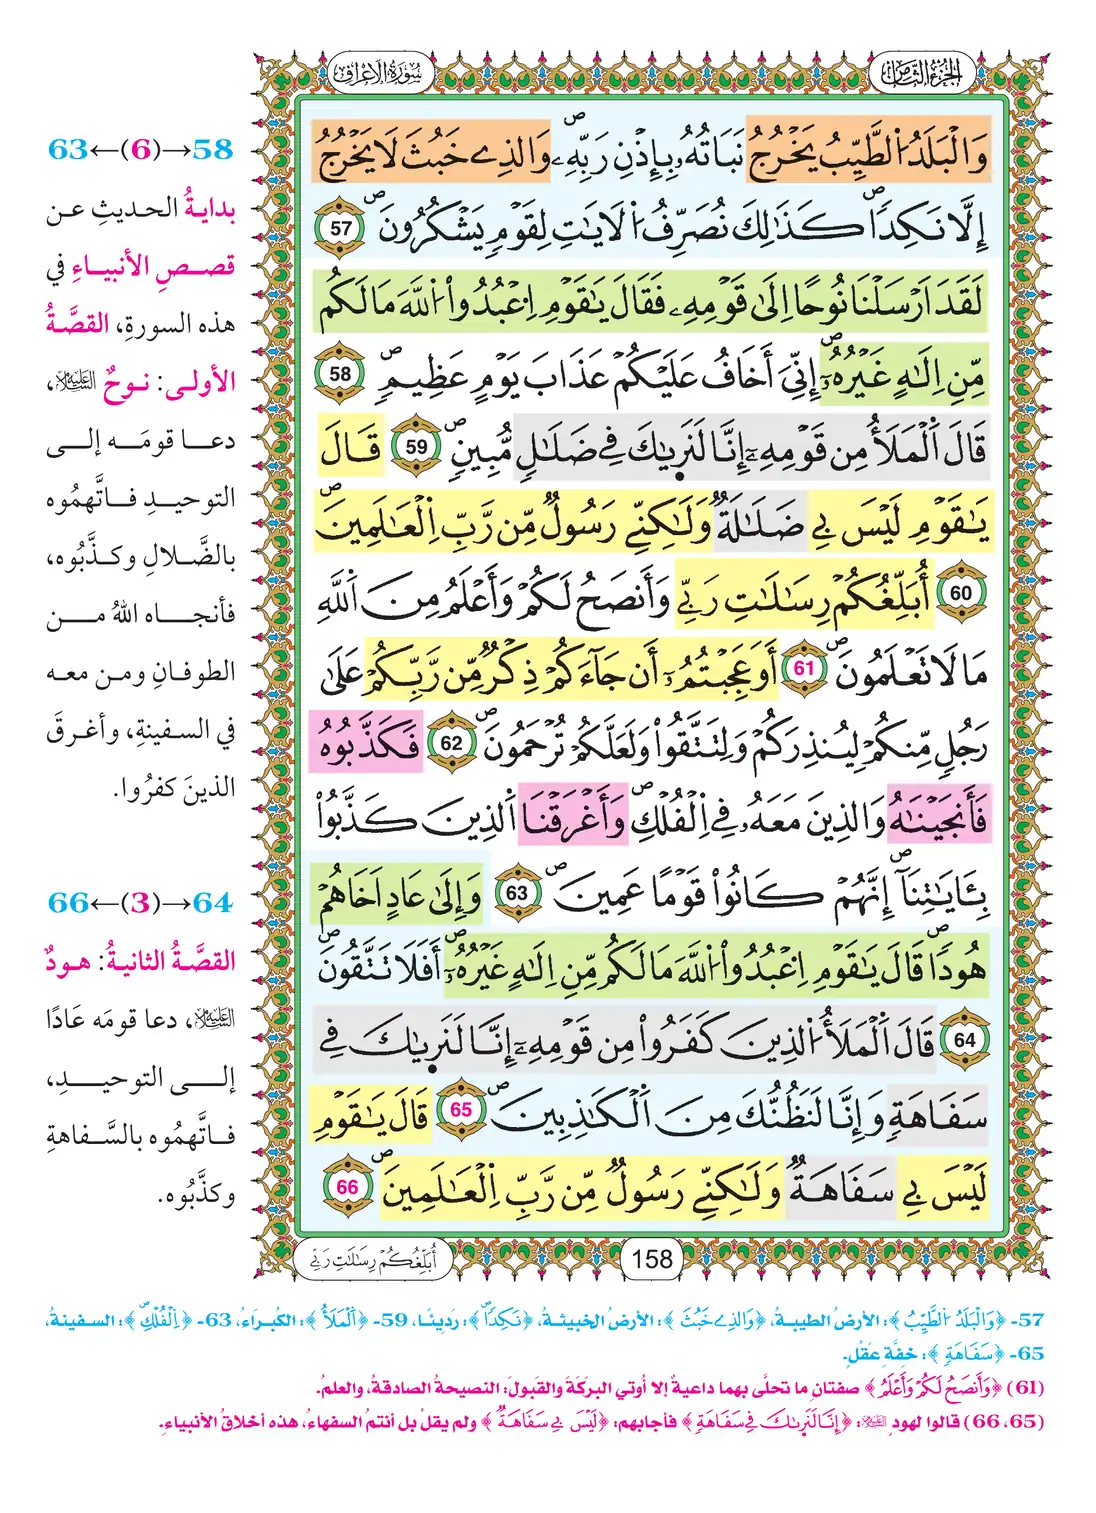 الجزء الثامن
سورة الأعراف
وَالْبَلَدُ اُلطَّيِّبُ يَخْرُجُ نَبَاتُهُۥ بِإِذْنِ رَبِّهِۦۖ وَالذِے خَبُثَ لَا يَخْرُجُ
إِلَّا نَكِداٗۖ كَذَٰلِكَ نُصَرِّفُ اُلَايَٰتِ لِقَوْمٖ يَشْكُرُونَۖ 57
لَقَدَ اَرْسَلْنَا نُوحاً اِلَىٰ قَوْمِهِۦ فَقَالَ يَٰقَوْمِ اِعْبُدُواْ اُللَّهَ مَا لَكُم
مِّنِ اِلَٰهٍ غَيْرُهُۥٓۖ إِنِّيَ أَخَافُ عَلَيْكُمْ عَذَابَ يَوْمٍ عَظِيمٖۖ 58
قَالَ اَلْمَلَأُ مِن قَوْمِهِۦٓ إِنَّا لَنَر۪يٰكَ فِے ضَلَٰلٖ مُّبِينٖۖ 59 قَالَ
يَٰقَوْمِ لَيْسَ بِے ضَلَٰلَةٞ وَلَٰكِنِّے رَسُولٞ مِّن رَّبِّ اِلْعَٰلَمِينَۖ
60 أُبَلِّغُكُمْ رِسَٰلَٰتِ رَبِّے وَأَنصَحُ لَكُمْ وَأَعْلَمُ مِنَ اَللَّهِ
مَا لَا تَعْلَمُونَۖ 61 أَوَعَجِبْتُمُۥٓ أَن جَآءَكُمْ ذِكْرٞ مِّن رَّبِّكُمْ عَلَىٰ
رَجُلٖ مِّنكُمْ لِيُنذِرَكُمْ وَلِتَتَّقُواْ وَلَعَلَّكُمْ تُرْحَمُونَۖ 62 فَكَذَّبُوهُ
فَأَنجَيْنَٰهُ وَالذِينَ مَعَهُۥ فِے اِلْفُلْكِۖ وَأَغْرَقْنَا اَلذِينَ كَذَّبُواْ
بِـَٔايَٰتِنَآۖ إِنَّهُمْ كَانُواْ قَوْماً عَمِينَۖ 63 وَإِلَىٰ عَادٍ اَخَاهُمْ
هُوداٗۖ قَالَ يَٰقَوْمِ اِعْبُدُواْ اُللَّهَ مَا لَكُم مِّنِ اِلَٰهٍ غَيْرُهُۥٓۖ أَفَلَا تَتَّقُونَۖ
64 قَالَ اَلْمَلَأُ اُلذِينَ كَفَرُواْ مِن قَوْمِهِۦٓ إِنَّا لَنَر۪يٰكَ فِے
سَفَاهَةٖ وَإِنَّا لَنَظُنُّكَ مِنَ اَلْكَٰذِبِينَۖ 65 قَالَ يَٰقَوْمِ
لَيْسَ بِے سَفَاهَةٞ وَلَٰكِنِّے رَسُولٞ مِّن رَّبِّ اِلْعَٰلَمِينَۖ 66
158
أُبَلِّغُكُمْ رِسَٰلَٰتِ رَبِّے
63←(6)→58
بدايةُ الحديثِ عن
قصصِ الأنبياءِ في
هذه السورةِ، القصَّةُ
الأولى: نوحٌ عليه السلام،
دعا قومَه إلى
التوحيدِ فاتَّهمُوه
بالضَّلالِ وكذَّبُوه،
فأنجاه اللهُ من
الطوفانِ ومن معه
في السفينةِ، وأغرقَ
الذينَ كفرُوا.
66←(3)→64
القصَّةُ الثانيةُ: هودٌ
عليه السلام، دعا قومَه عَادًا
إلى التوحيدِ،
فاتَّهمُوه بالسَّفاهةِ
وكذَّبُوه.
57- ﴿وَالْبَلَدُ اُلطَّيِّبُ﴾: الأرضُ الطيبةُ، ﴿وَالذِے خَبُثَ﴾: الأرضُ الخبيثةُ، ﴿نَكِداٗۖ﴾: رَدِيئًا، 59- ﴿اَلْمَلَأُ﴾: الكُبراءُ، 63- ﴿اِلْفُلْكِۖ﴾: السفينةُ،
65- ﴿سَفَاهَةٖ﴾: خفَّةِ عقلٍ.
(61) ﴿وَأَنصَحُ لَكُمْ وَأَعْلَمُ﴾ صفتانِ ما تحلَّى بهما داعيةٌ إلا أوتي البركةَ والقبولَ: النصيحةُ الصادقةُ، والعلمُ.
(65، 66) قالوا لهودٍ عليه السلام: ﴿إِنَّا لَنَر۪يٰكَ فِے سَفَاهَةٖ﴾ فأجابهم: ﴿لَيْسَ بِے سَفَاهَةٞ﴾ ولم يقلْ بل أنتمُ السفهاءُ، هذه أخلاقُ الأنبياءِ.